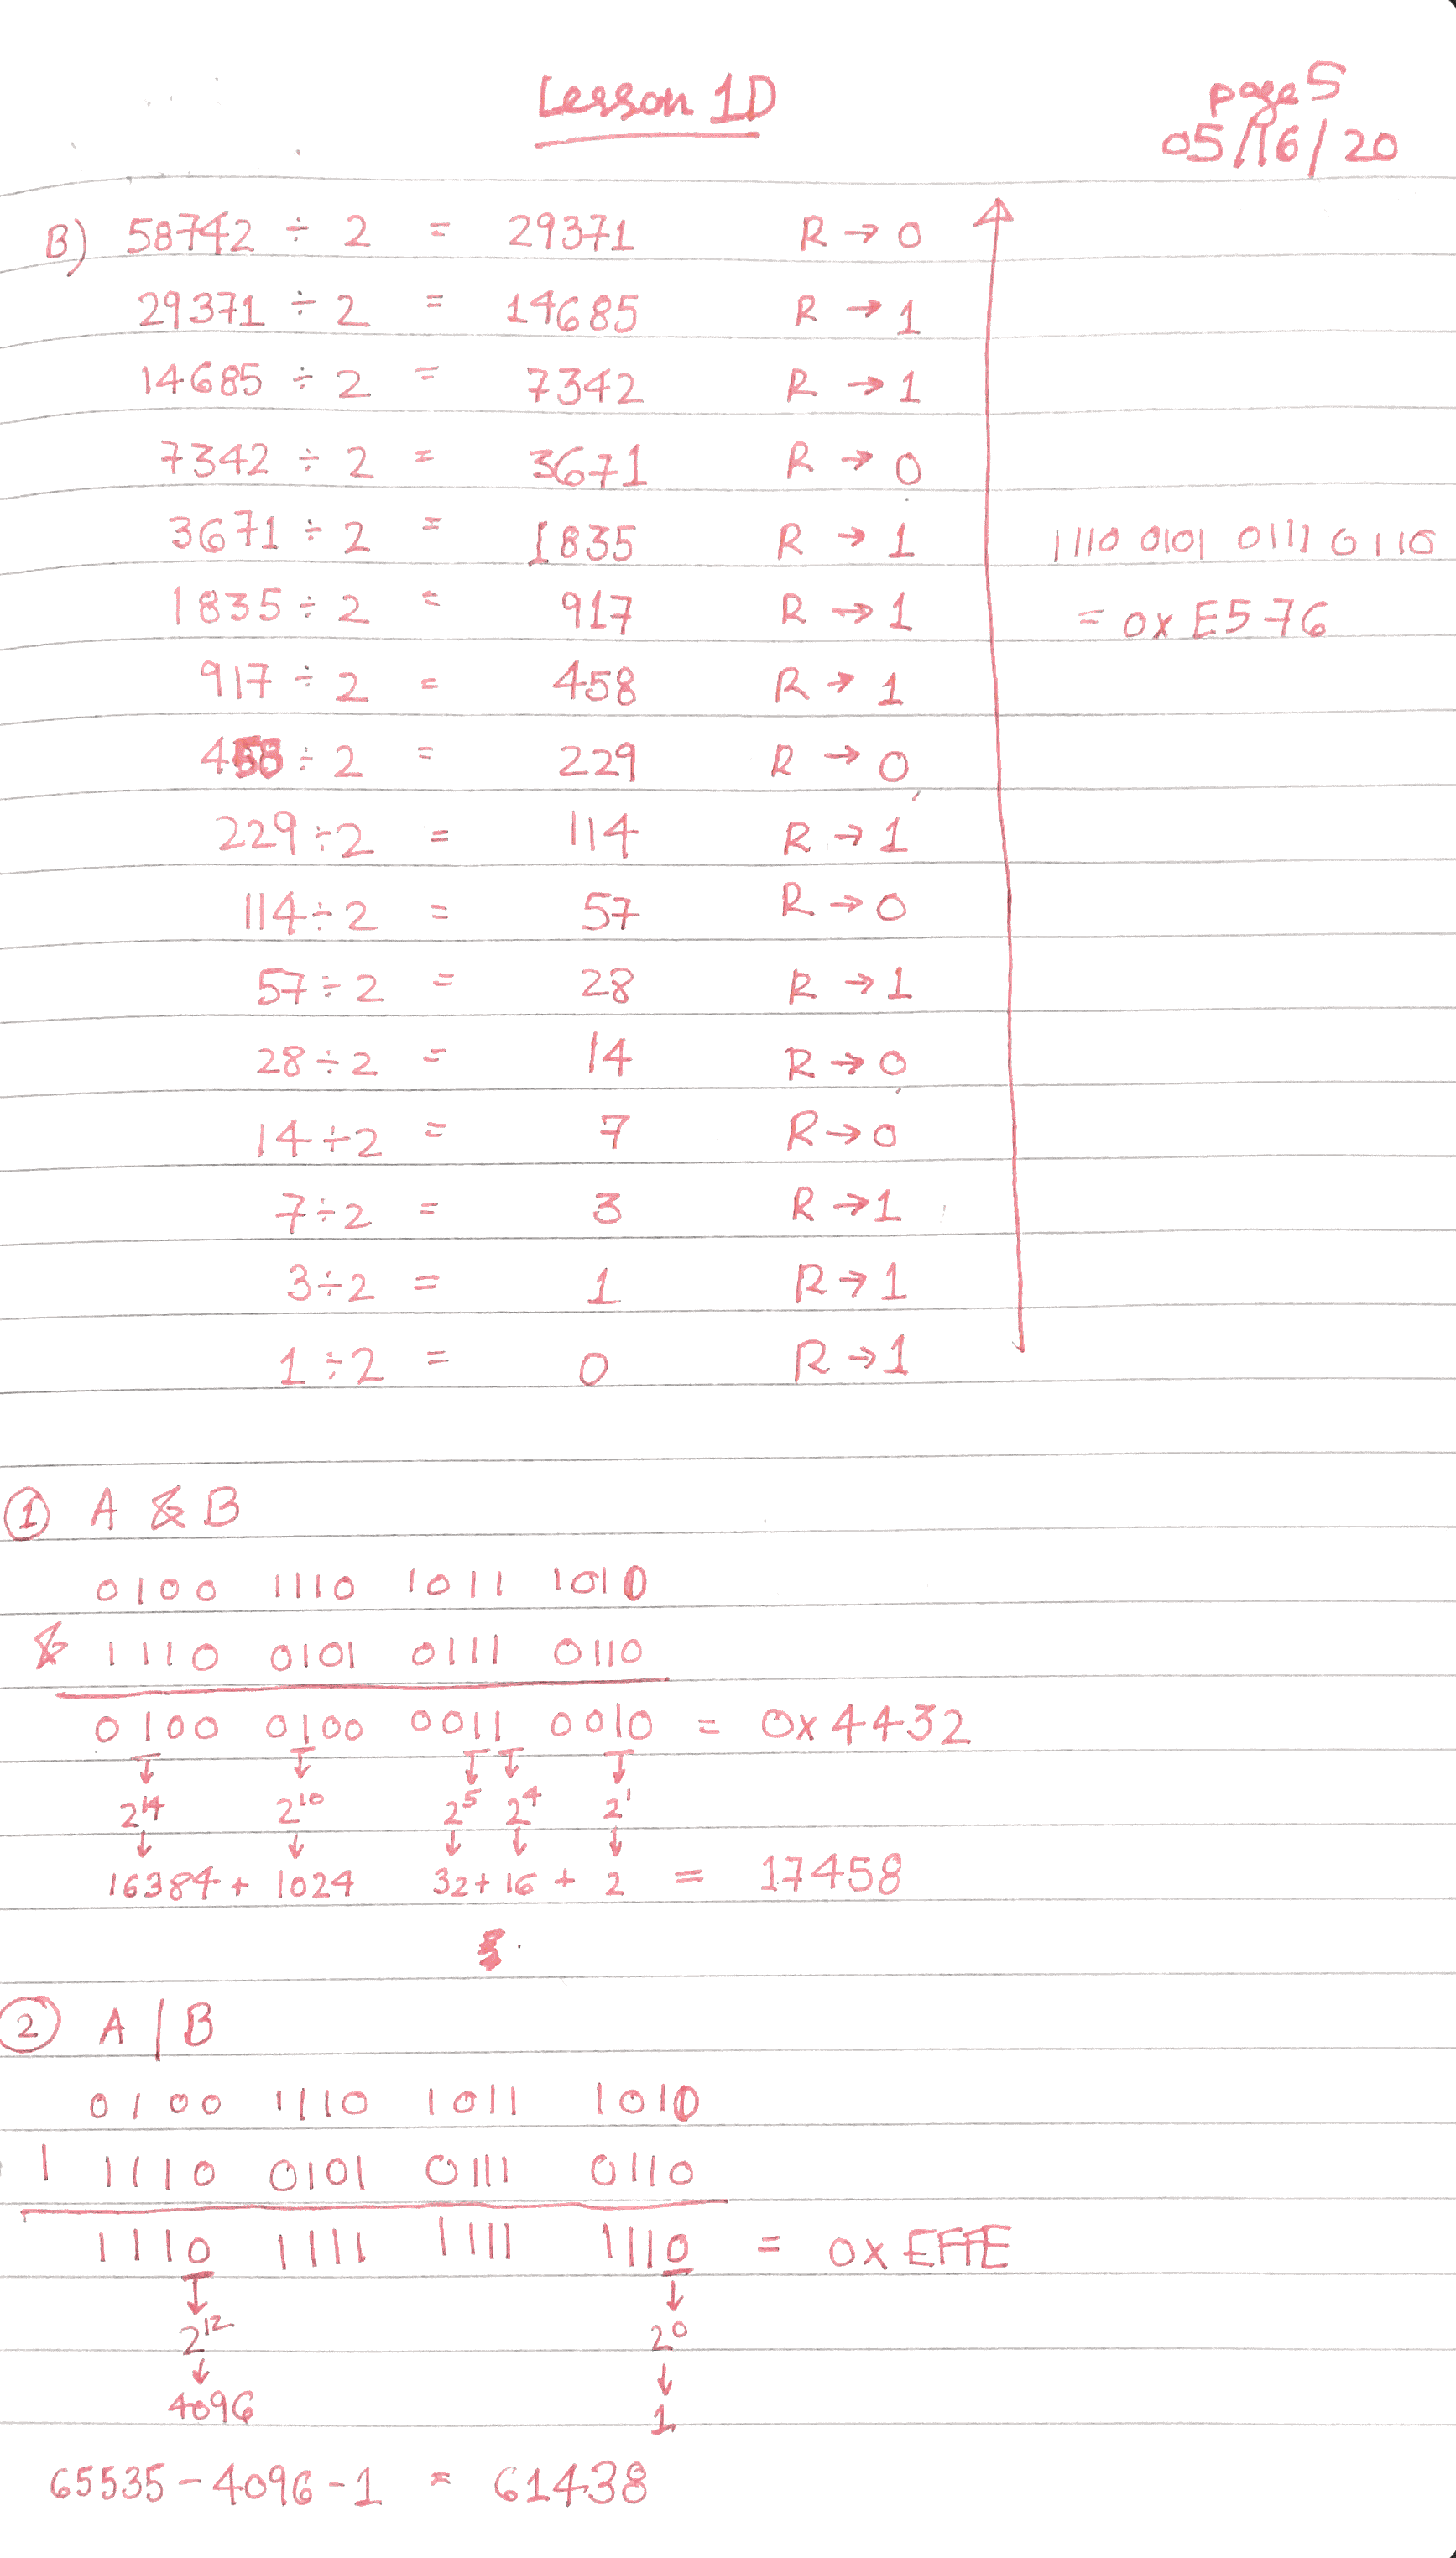 Lesson 1D
page 5
05/16/20
B) 58742 ÷ 2 = 29371 R → 0
29371 ÷ 2 = 14685 R → 1
14685 ÷ 2 = 7342 R → 1
7342 ÷ 2 = 3671 R → 0
3671 ÷ 2 = 1835 R → 1
1110 0101 0111 0110
1835 ÷ 2 = 917 R → 1
= 0x E576
917 ÷ 2 = 458 R → 1
458 ÷ 2 = 229 R → 0
229 ÷ 2 = 114 R → 1
114 ÷ 2 = 57 R → 0
57 ÷ 2 = 28 R → 1
28 ÷ 2 = 14 R → 0
14 ÷ 2 = 7 R → 0
7 ÷ 2 = 3 R → 1
3 ÷ 2 = 1 R → 1
1 ÷ 2 = 0 R → 1
① A & B
0100 1110 1011 1010
& 1110 0101 0111 0110
0100 0100 0011 0010 = 0x4432
↓ ↓ ↓ ↓ ↓
2¹⁴ 2¹⁰ 2⁵ 2⁴ 2¹
↓ ↓ ↓ ↓ ↓
16384 + 1024 32 + 16 + 2 = 17458
② A | B
0100 1110 1011 1010
| 1110 0101 0111 0110
1110 1111 1111 1110 = 0x EFFE
↓ ↓
2¹² 2⁰
↓ ↓
4096 1
65535 - 4096 - 1 = 61438